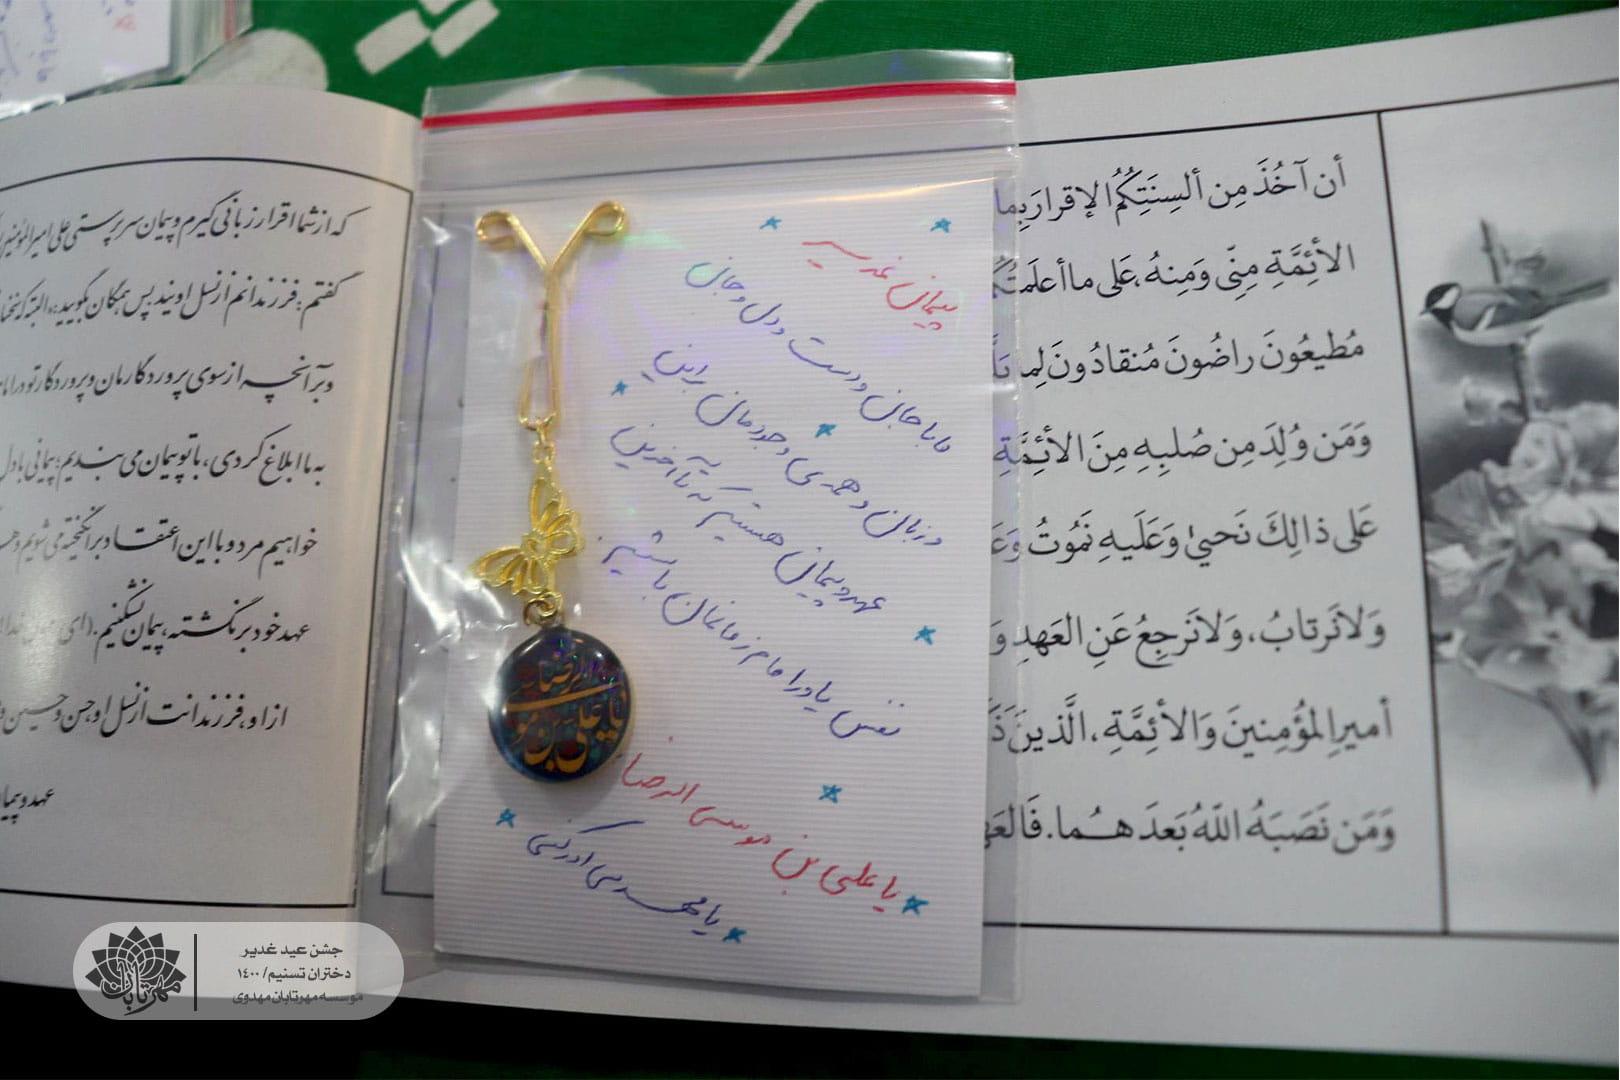 أن آخُذَ مِن ألسِنَتِكُمُ الإقرارَ بِما
الأئِمَّةِ مِنّي وَمِنهُ، عَلى ما أعلَمتُكُم
مُطيعُونَ راضُونَ مُنقادُونَ لِما
وَمَن وُلِدَ مِن صُلبِهِ مِنَ الأئِمَّةِ
عَلى ذالِكَ نَحيىٰ وَعَلَيهِ نَمُوتُ
وَلانَرتابُ، وَلانَرجِعُ عَنِ العَهدِ
أميرِ المُؤمِنينَ وَالأئِمَّةِ، الَّذينَ
وَمَن نَصَبَهُ اللّهُ بَعدَهُما. فَالعَهدُ
پیمان غدیر
ما با جان و دست و دل و جان
و زبان و همه‌ی وجودمان بر این
عهد و پیمان هستیم که تا آخرین
نفس یاور امام زمانمان باشیم.
یا علی بن موسی الرضا
یا مهدی ادرکنی
یا علی بن موسی الرضا
که از شما اقرار زبانی گیرم و پیمان سرپرستی علی امیرالمؤمنین
گفتم: فرزندانم از نسل اویند پس همگان بگویید:
و بر آنچه از سوی پروردگارمان و پروردگارتو
به ما ابلاغ کردی، با تو پیمان می‌بندیم؛ پیمانی با دل
خواهیم مرد و با این اعتقاد برانگیخته می‌شویم
عهد خود برنگشته، پیمان نشکنیم. (ای
از او، فرزندانت از نسل او حسن و حسین
عهد و پیمان
جشن عید غدیر
دختران تسنیم/ ۱۴۰۰
موسسه مهرتابان مهدوی
مهرتابان